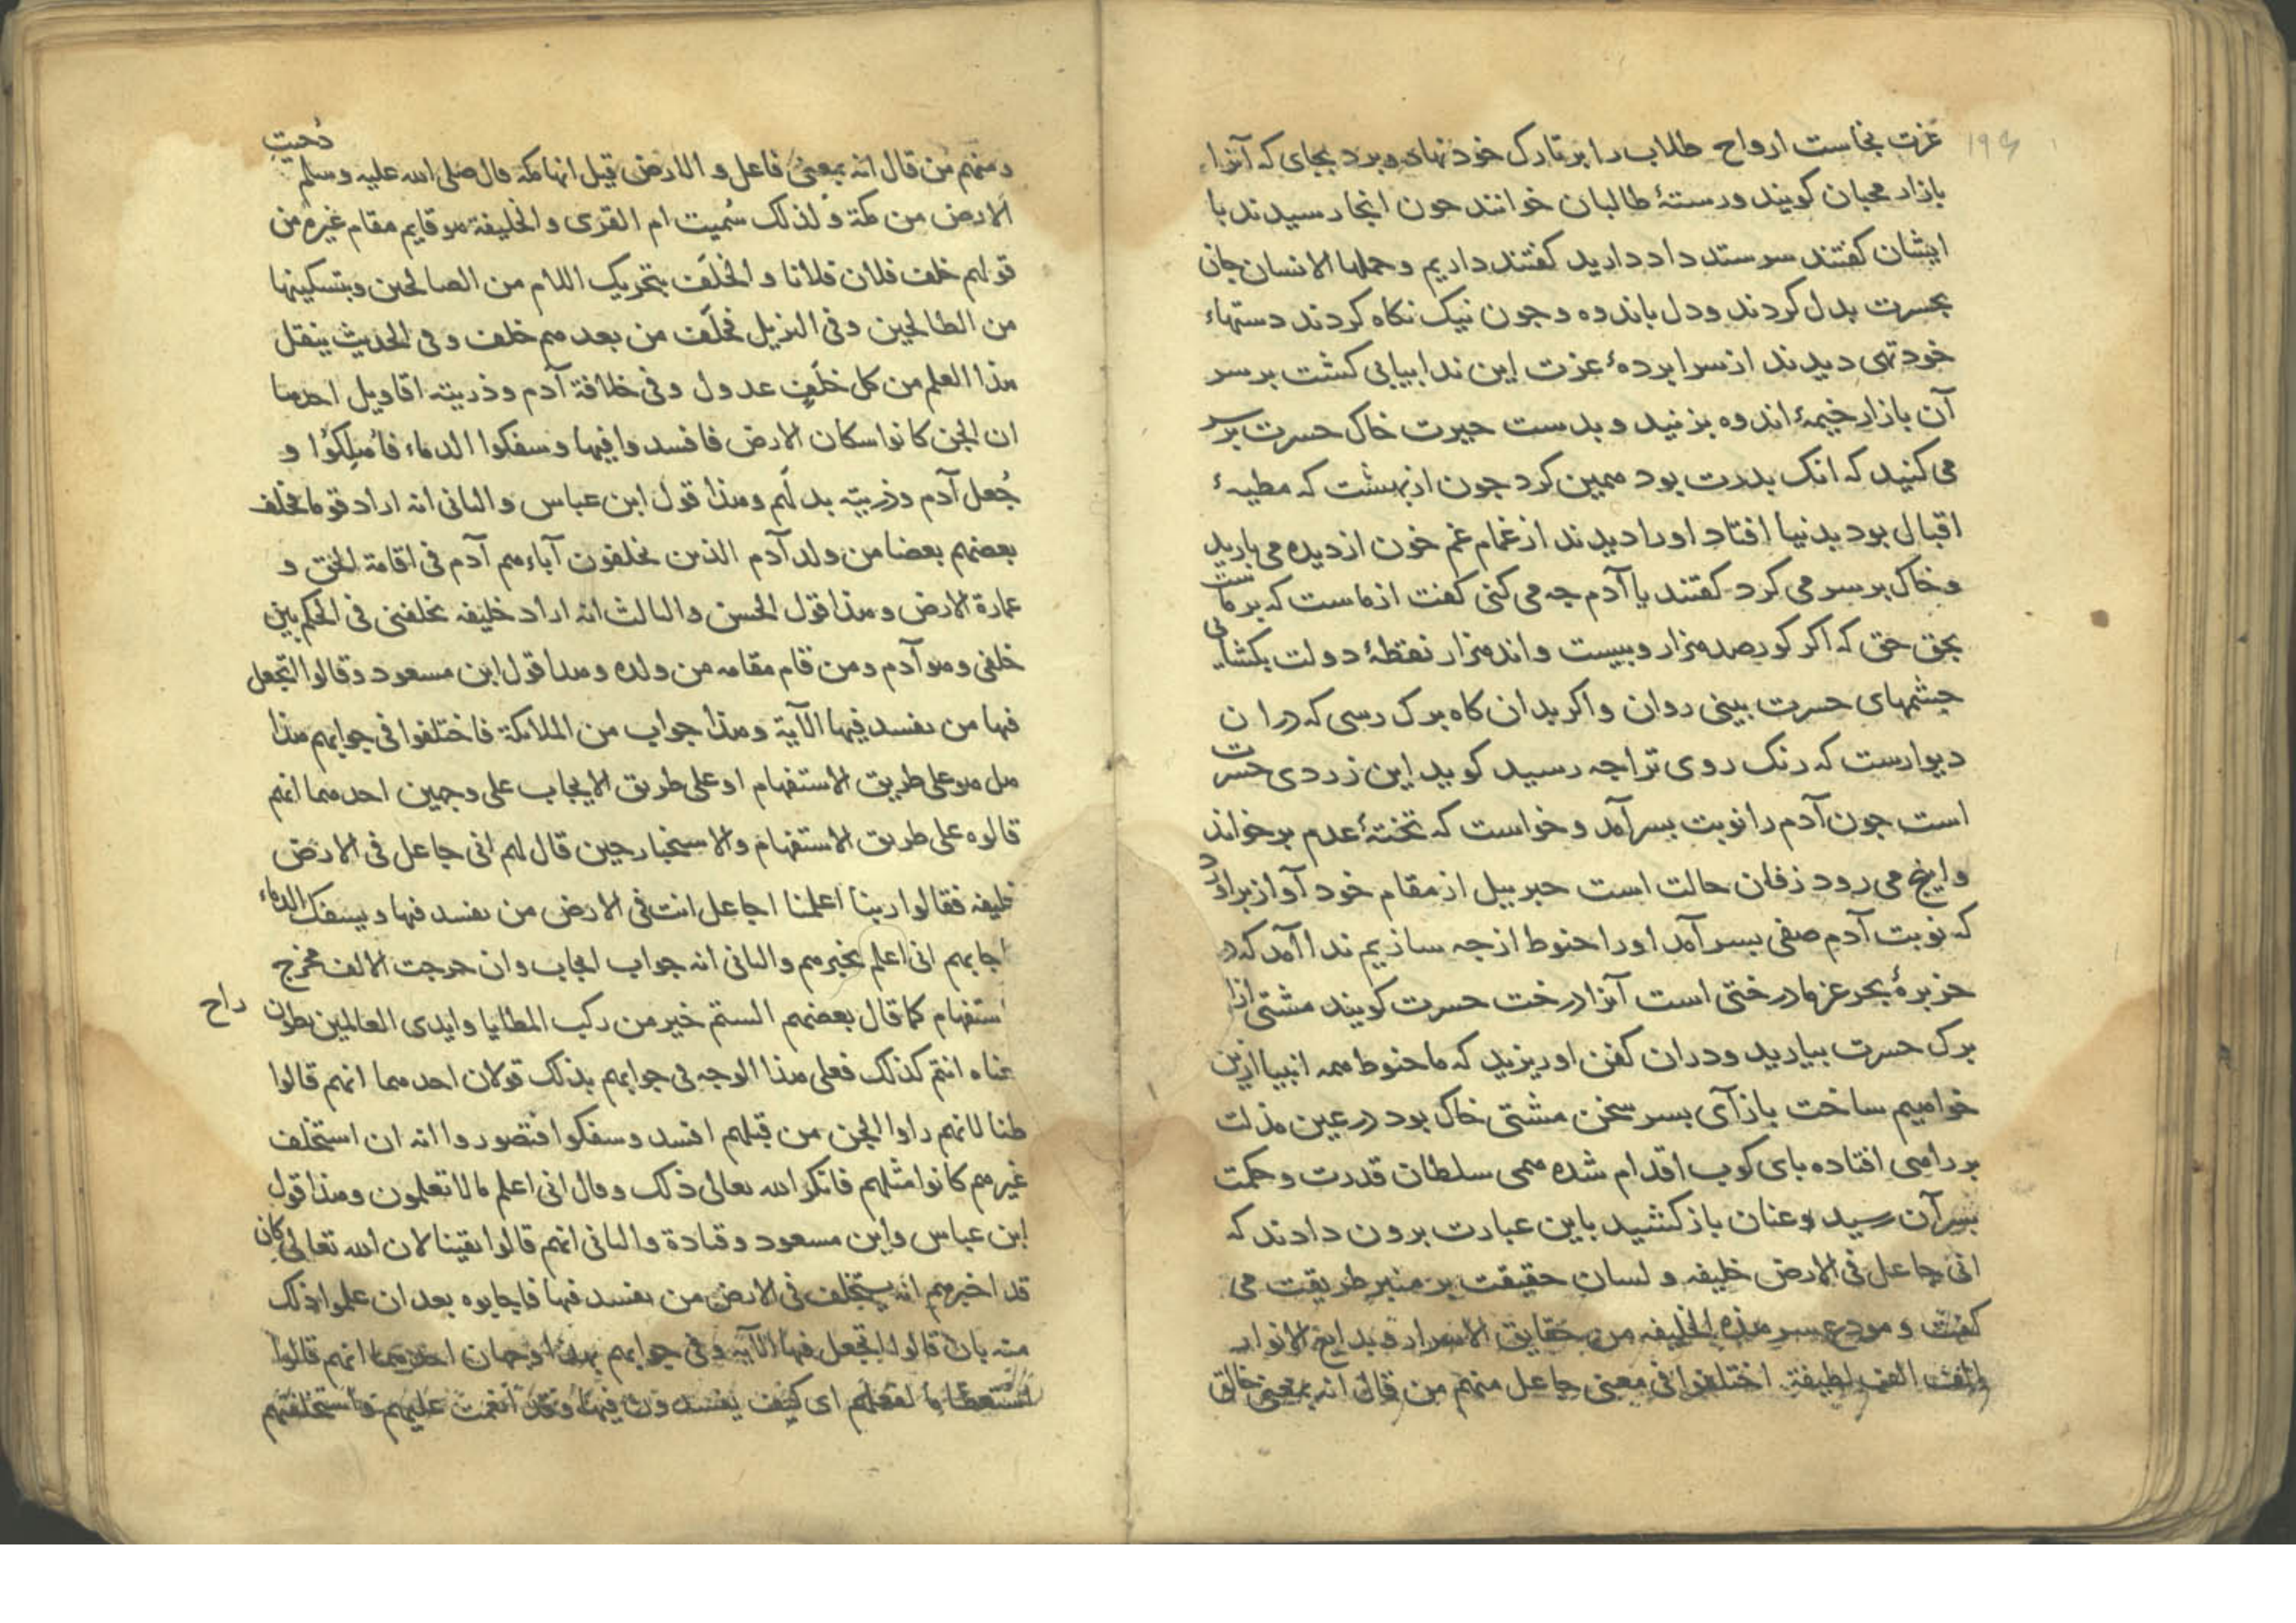 ۱۹۴
عزت بخاست ارواح طلاب را بر تارک خود نهاد و برد بجای که آنرا
بازار محبان کویند ورستهٔ طالبان خوانند حون انجا رسیدند با
ایشان کفتند سرستد داد دارید کفتند داریم وحملها الانسان جان
بحسرت بدل کردند ودل باندوه وجون نیک نکاه کردند دستهاء
خود تهی دیدند از سرابردهٔ عزت این ندا بیابی کشت بر سر
آن بازار خیمهٔ اندوه بزنید و بدست حیرت خاک حسرت بر سر
می کنید که انک بدرت بود همین کرد جون از بهشت که مطیهٔ
اقبال بود بدنیا افتاد اورا دیدند از غمام غم خون از دیده می بارید
وخاک بر سر می کرد کفتند یا آدم جه می کنی کفت از ماست که بر ماست
بحق حق که اکر کور صد هزار وبیست واند هزار نقطهٔ دولت بکشایی
جشمهای حسرت بینی روان واکر بدان کاه برک رسی که در ان
دیوارست که رنک روی ترا جه رسید کوید این زردی حسرت
است جون آدم را نوبت بسر آمد وخواست که تختهٔ عدم بر خواند
واینج می رود زفان حالت است جبرییل از مقام خود آواز براورد
که نوبت آدم صفی بسر آمد اورا حنوط از جه سازیم ندا آمد که در
جزیرهٔ بحر عز ما درختی است آنرا درخت حسرت کویند مشتی ازا
برک حسرت بیارید ودران کفن او ریزید که ما حنوط همه انبیا ازین
خواهیم ساخت باز آی بسر سخن مشتی خاک بود در عین مذلت
بر راهی افتاده بای کوب اقدام شده همی سلطان قدرت وحکمت
بسر آن رسید وعنان باز کشید باین عبارت برون دادند که
انی جاعل فی الارض خلیفه ولسان حقیقت بر منبر طریقت می
کفت ومودع سر هذه الخلیفه من حقایق الاسرار وبدایع الانوار
والفت الف لطیفة اختلفوا فی معنی جاعل منهم من قال انه بمعنی خالق
ومنهم من قال انه بمعنی فاعل والارض قیل انها مکة قال صلی الله علیه وسلم دُحیت
الارض من مکة ولذلک سُمیت ام القری والخلیفة هو قایم مقام غیره من
قولهم خلف فلان فلانا والخلَف بتحریک اللام من الصالحین وبتسکینها
من الطالحین وفی التنزیل فخلَف من بعدهم خلف وفی الحدیث ینقل
هذا العلم من کل خلَفٍ عدول وفی خلافة آدم وذریته اقاویل احدها
ان الجن کانوا سکان الارض فافسدوا فیها وسفکوا الدماء فاُهلِکُوا و
جُعل آدم وذریته بدلهم وهذا قول ابن عباس والثانی انه اراد قوما یخلف
بعضهم بعضا من ولد آدم الذین یخلفون آباءهم آدم فی اقامة الحق و
عمارة الارض وهذا قول الحسن والثالث انه اراد خلیفه یخلفنی فی الحکم بین
خلقی وهو آدم ومن قام مقامه من ولده وهذا قول ابن مسعود وقالوا اتجعل
فیها من یفسد فیها الآیة وهذا جواب من الملائکة فاختلفوا فی جوابهم هذا
هل هو علی طریق الاستفهام او علی طریق الایجاب علی وجهین احدهما انهم
قالوه علی طریق الاستفهام والاستخبار حین قال لهم انی جاعل فی الارض
خلیفه فقالوا ربنا اعلمنا اجاعل انت فی الارض من یفسد فیها ویسفک الدماء
اجابهم انی اعلم بخبرهم والثانی انه جواب ایجاب وان خرجت الالف مخرج
استفهام کما قال بعضهم الستم خیر من رکب المطایا واندی العالمین بطون راح
عناه انتم کذلک فعلی هذا الوجه فی جوابهم بذلک قولان احدهما انهم قالوا
ظنا لانهم راوا الجن من قبلهم افسد وسفکوا فتصوروا انه ان استخلف
غیرهم کانوا مثلهم فانکر الله تعالی ذلک وقال انی اعلم ما لا تعلمون وهذا قول
ابن عباس وابن مسعود وقتادة والثانی انهم قالوا یقینا لان الله تعالی کان
قد اخبرهم انه یستخلف فی الارض من یفسد فیها فاجابوه بعد ان علموا ذلک
منه بان قالوا اتجعل فیها الآیه وفی جوابهم بهذا وجهان احدهما انهم قالوا
استعظاما لفعلهم ای کیف یفسدون فیها وقد انعمت علیهم واستخلفتهم